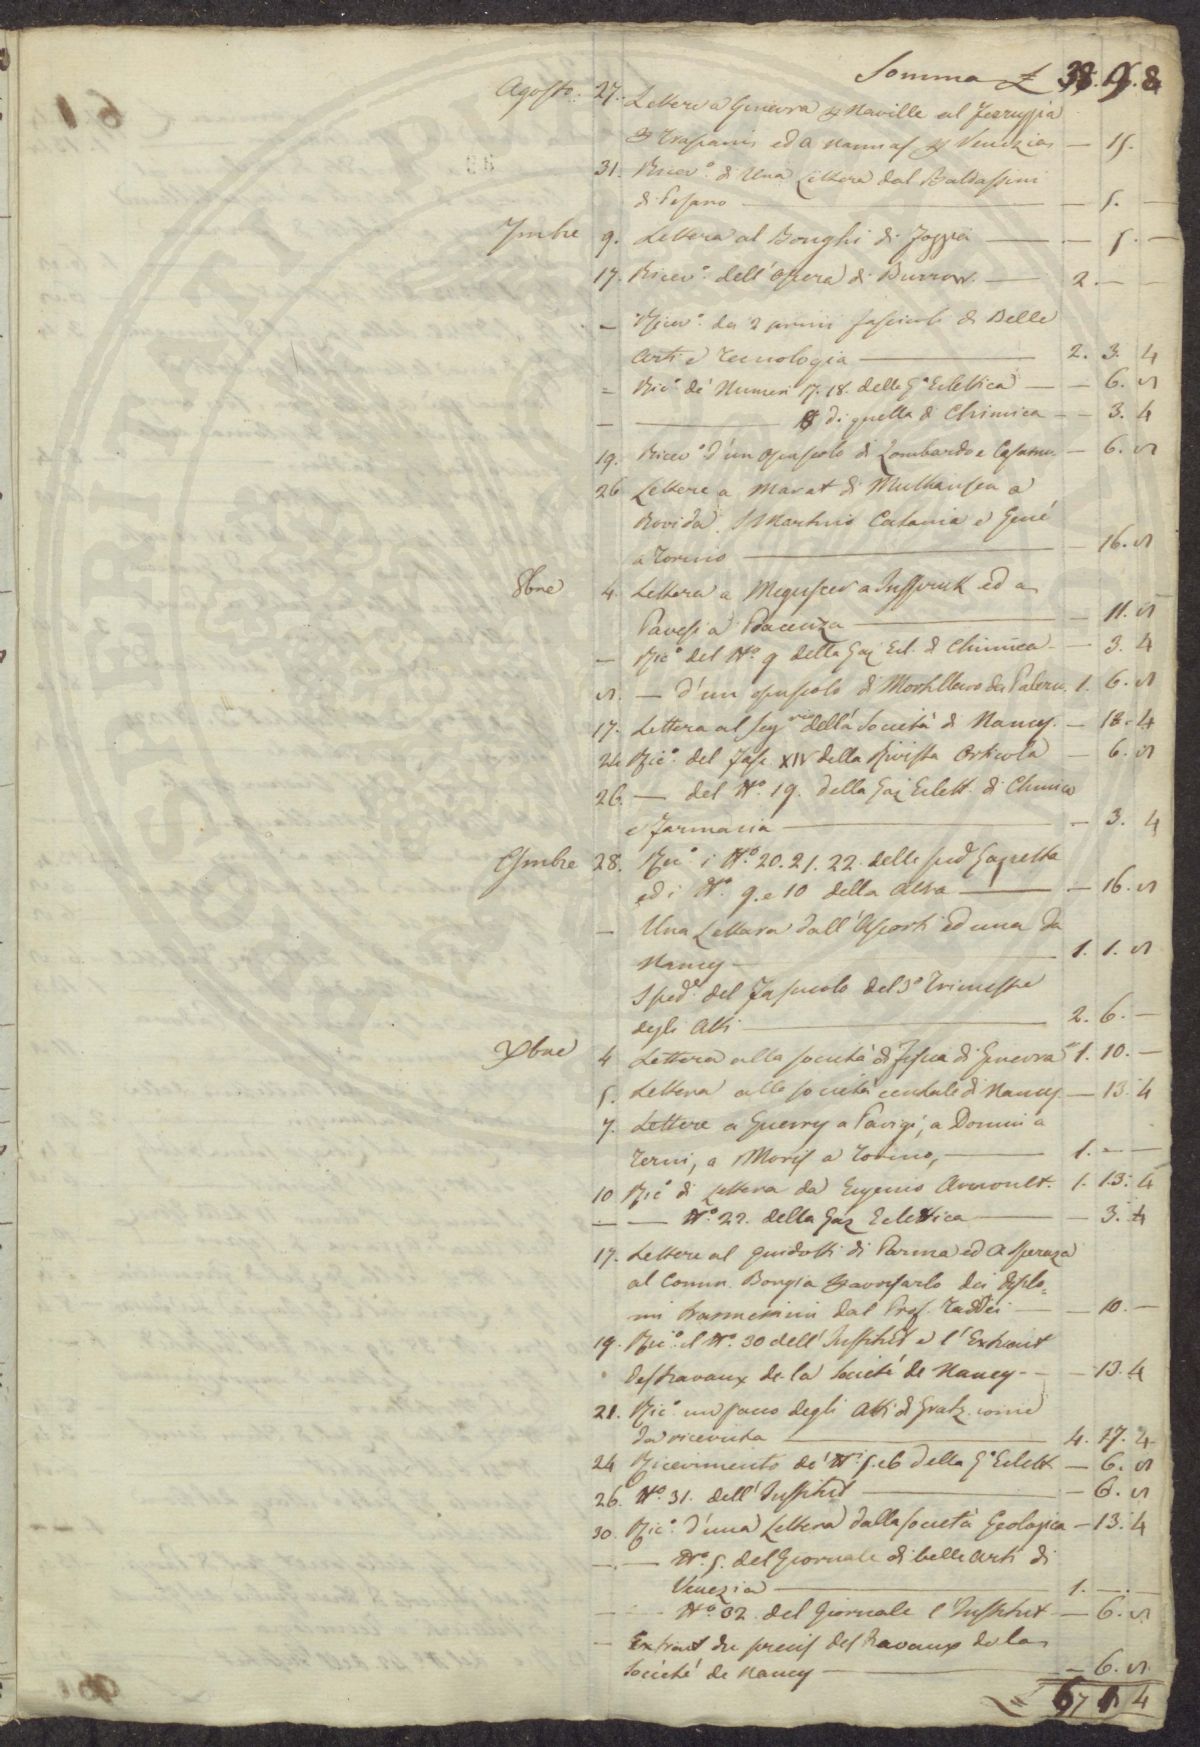 Somma £ 38. 9. 8
Agosto. 27. Lettere a Ginevra Naville al
Trapani ed a Venezia — 15.
31. Ricev.° di Una Lettera dal Baldassini
di Pesaro — 5. —
7mbre 9. Lettera al Bonghi di Foggia — 5. —
17. Ricev.° dell'opera di Burrow. — 2. — —
— Ricev.° dei 2 primi fascicoli di Belle
Arti e Tecnologia — 2. 3. 4
= Ric.° de' Numeri 17. 18. della G.ª Eclettica — 6. 8
— di quella di Chimica — 3. 4
19. Ricev.° d'un opuscolo di Lombardo e — 6. 8
26 Lettere a Marat di Mulhausen a
Rovida, S Martino Catania e Gené
a Torino — 16. 8
8bre 4. Lettera a a Inspruk ed a
Pavesi a Piacenza — 11. 8
— Ric.° del N.° 9 della Gaz. Ecl. di Chimica — 3. 4
8. — d'un opuscolo di Mortillaro da Palerm. 1. 6. 8
17. Lettera al Seg.rio della Società di Nancy. — 18. 4
24 Ric.° del Fasc. XIV della Rivista Orticola — 6. 8
26. — del N.° 19. della Gaz. Eclett. di Chimica
e Farmacia — 3. 4
9mbre 28. Ric.° i N.° 20. 21. 22. della sud.ª Gazzetta
ed i N.° 9. e 10 della altra — 16. 8
— Una Lettera dall'Aporti ed una da
Nancy — 1. 1. 8
Sped.e del Fascicolo del 3.° Trimestre
degli Atti — 2. 6. —
Xbre 4 Lettera alla società di Fisica di Ginevra 1. 10. —
5. Lettera alla società centrale di Nancy — 13. 4
7. Lettere a Guerry a Parigi, a Domini a
Terni, a Moris a Torino, — 1. — —
10 Ric.° di Lettera da Eugenio Arnoult. 1. 13. 4
— — N.° 22. della Gaz. Eclettica — 3. 4
17. Lettere al Guidotti di Parma ed a
al Comm. Borgia avvisarlo dei diplo=
mi trasmessimi dal Prof. Taddei — 10. —
19. Ric.° il N.° 30 dell'Institut e l'Extrait
des travaux de la Societé de Nancy — 13. 4
21. Ric.° un pacco degli Atti di Gratz. come
da ricevuta — 4. 17. 4
24 Ricevimento de' N.i 5. e 6 della G.ª Eclett — 6. 8
26. N.° 31. dell'Institut — 6. 8
30. Ric.° d'una Lettera dalla società Geologica — 13. 4
— — N.° 5. del Giornale di belle arti di
Venezia — 1. — —
— — N.° 32. del Giornale l'Institut — 6. 8
— Extrait du precis des travaux de la
Societé de Nancy — 6. 8.
£ 67 4